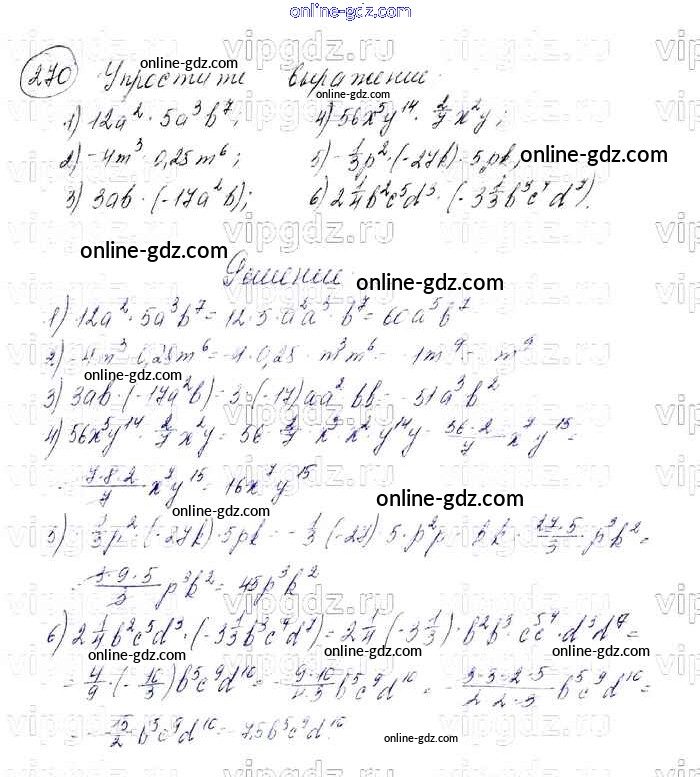 online-gdz.com
270 Упростите выражение.
online-gdz.com
1) 12a² · 5a³b⁷; 4) 56x⁵y¹⁴ · 2/7 x²y;
2) -4m³ · 0,25m⁶; 5) -1/3 p² · (-27k) · 5pk; online-gdz.com
3) 3ab · (-17a²b); 6) 2 1/4 b²c⁵d³ · (-3 1/3 b³c⁴d⁷).
online-gdz.com online-gdz.com
Решение.
online-gdz.com online-gdz.com
1) 12a² · 5a³b⁷ = 12 · 5 · a²a³ · b⁷ = 60a⁵b⁷
2) -4m³ · 0,25m⁶ = -4 · 0,25 · m³m⁶ = -1m⁹ = -m⁹
online-gdz.com
3) 3ab · (-17a²b) = 3 · (-17)aa² bb = -51a³b²
4) 56x⁵y¹⁴ · 2/7 x²y = 56 · 2/7 x⁵x² · y¹⁴y = 56·2/7 x⁷y¹⁵ =
= 7·8·2/7 x⁷y¹⁵ = 16x⁷y¹⁵
online-gdz.com
5) -1/3 p² · (-27k) · 5pk = -1/3 (-27) · 5 · p²p · kk = 27·5/3 · p³k² =
online-gdz.com online-gdz.com
= 3·9·5/3 p³k² = 45p³k²
6) 2 1/4 b²c⁵d³ · (-3 1/3 b³c⁴d⁷) = 2 1/4 · (-3 1/3) · b²b³ · c⁵c⁴ · d³d⁷ =
online-gdz.com online-gdz.com
= 4/9 · (-10/3)b⁵c⁹d¹⁰ = -9·10/4·3 b⁵c⁹d¹⁰ = -3·3·2·5/2·2·3 b⁵c⁹d¹⁰ =
online-gdz.com
= -15/2 b⁵c⁹d¹⁰ = -7,5b⁵c⁹d¹⁰.
online-gdz.com